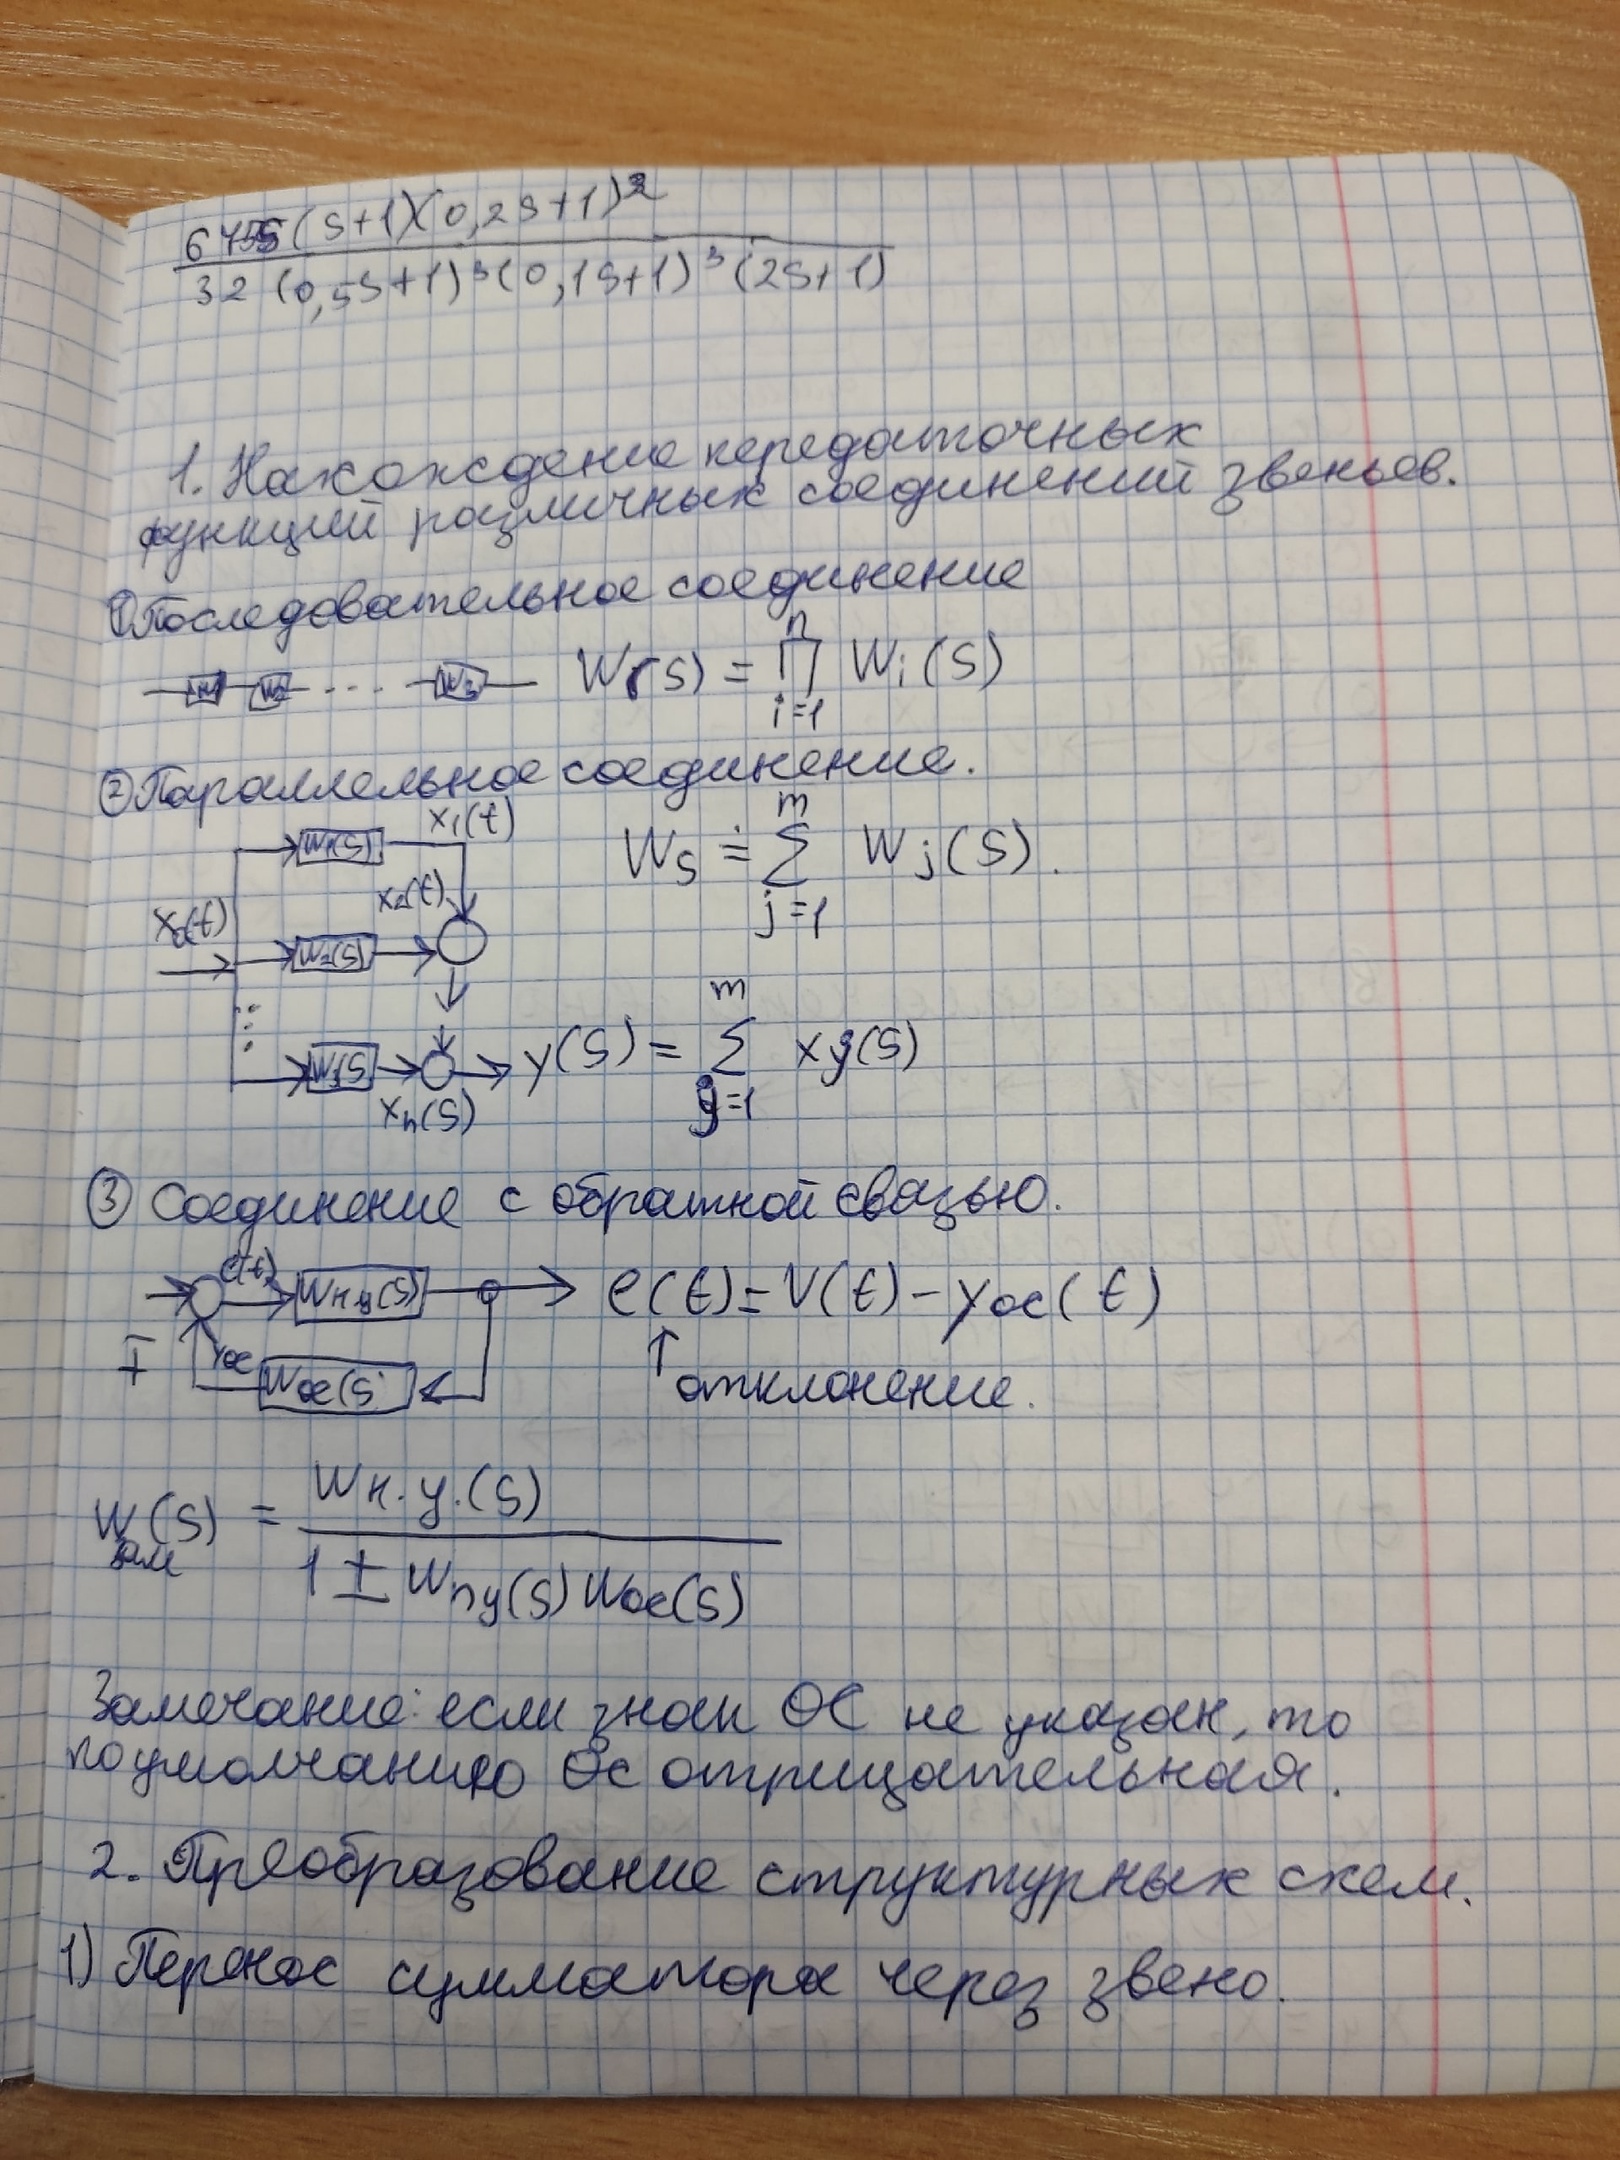 (s+1)(0,2s+1)
32 (0,5s+1)³(0,1s+1)³(2s+1)
1. Нахождение передаточных
функций различных соединений звеньев.
① Последовательное соединение
W2 ... W(s) = ∏ Wi(s)
n
i=1
② Параллельное соединение.
W1(s) x1(t)
Ws = ∑ Wj(s).
m
j=1
x2(t)
x0(t)
W2(s)
m
y(s) = ∑ xj(s)
j=1
xn(s)
③ Соединение с обратной связью.
e(t) Wп.у(s) e(t) = V(t) - yос(t)
∓ yос Wос(s) ↑ отклонение.
Wзам(s) = Wп.у.(s)
1 ± Wпу(s) Wос(s)
Замечание: если знак ОС не указан, то
по умолчанию Ос отрицательная.
2. Преобразование структурных схем.
1) Перенос сумматора через звено.